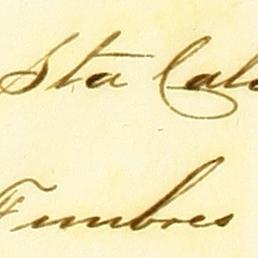 Sta Cala
Fimbres